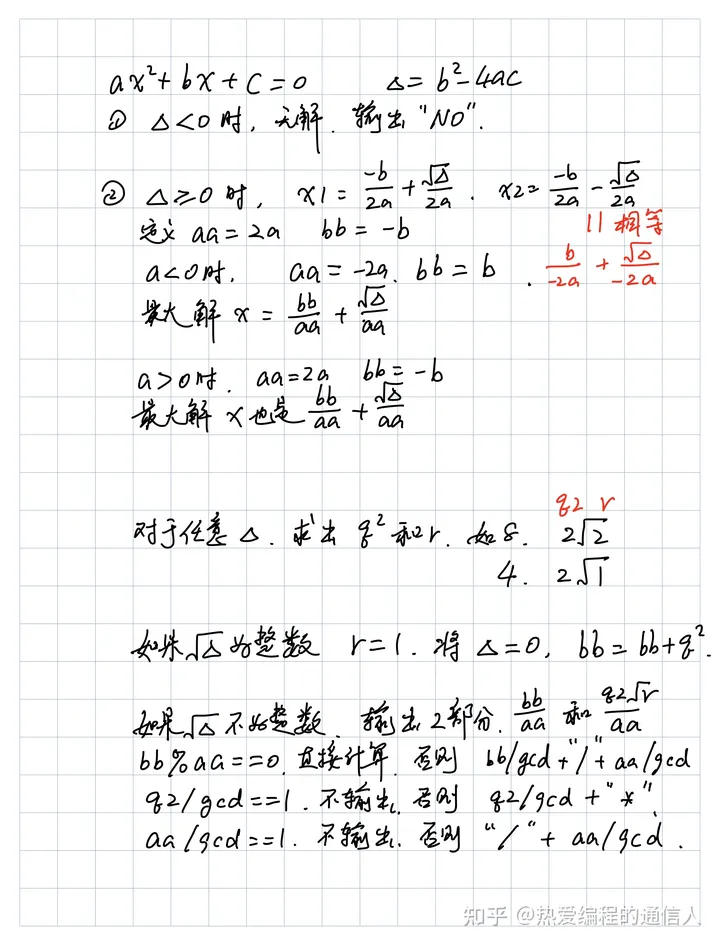 ax²+bx+c=0 Δ=b²-4ac
① Δ<0时, 无解. 输出"NO".
② Δ≥0时, x1=-b/2a+√Δ/2a. x2=-b/2a-√Δ/2a
定义 aa=2a bb=-b || 相等
a<0时, aa=-2a. bb=b. b/-2a+√Δ/-2a
最大解 x=bb/aa+√Δ/aa
a>0时. aa=2a bb=-b
最大解 x也是 bb/aa+√Δ/aa
q2 r
对于任意Δ. 求出 q²和r. 如8. 2√2
4. 2√1
如果√Δ为整数 r=1. 将Δ=0, bb=bb+q².
如果√Δ不为整数. 输出2部分. bb/aa 和 q2√r/aa
bb%aa==0. 直接计算. 否则 bb/gcd+"/"+aa/gcd
q2/gcd==1. 不输出. 否则 q2/gcd+"*"
aa/gcd==1. 不输出. 否则 "/"+aa/gcd.
知乎 @热爱编程的通信人